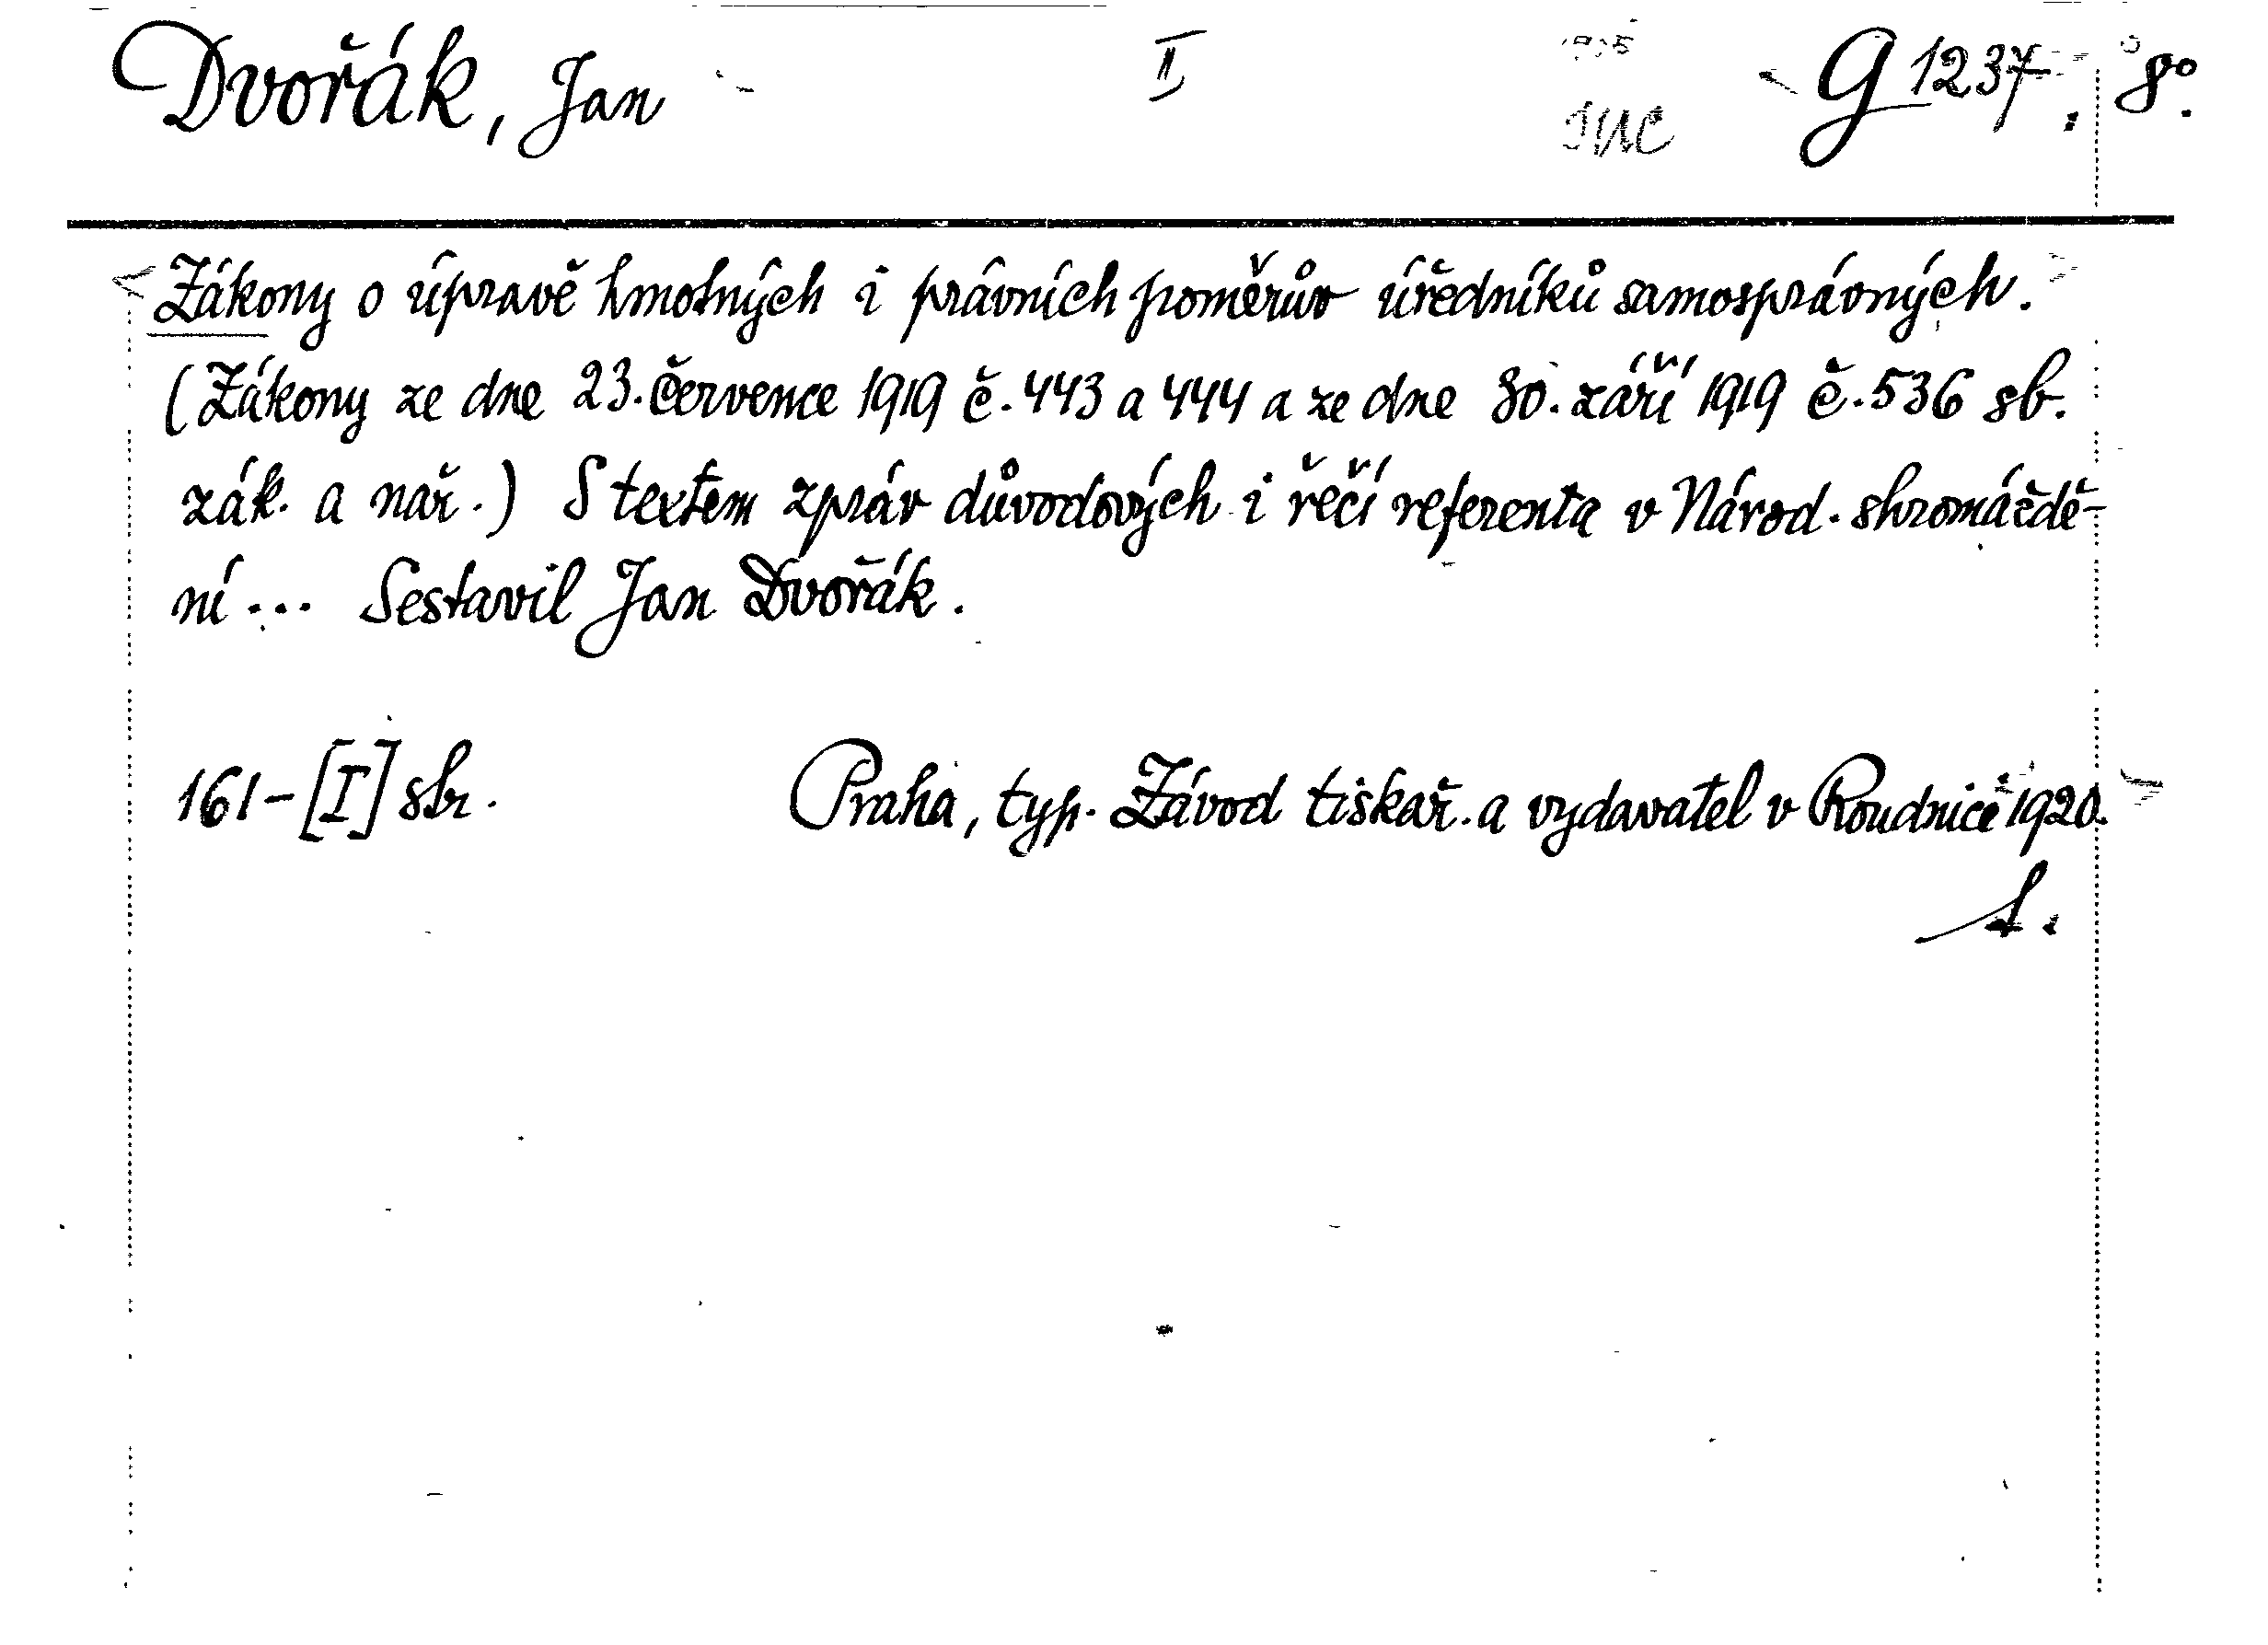 Dvořák, Jan II G 1237. 8°.
Zákony o úpravě hmotných i právních poměrův úředníků samosprávných.
(Zákony ze dne 23. července 1919 č. 443 a 444 a ze dne 30. září 1919 č. 536 sb.
zák. a nař.) S textem zpráv důvodových i řečí referenta v Národ. shromáždě-
ní ... Sestavil Jan Dvořák.
161-[I] str. Praha, typ. Závod tiskař. a vydavatel v Roudnici 1920.